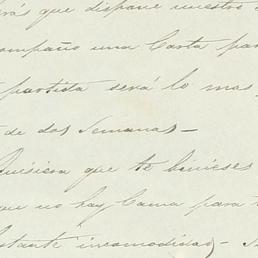 que dispone nuestro
acompaño una Carta par
partida será lo mas
de dos Semanas—
Quisiera que te vinieses
que no hay Cama para
bastante incomodidad—